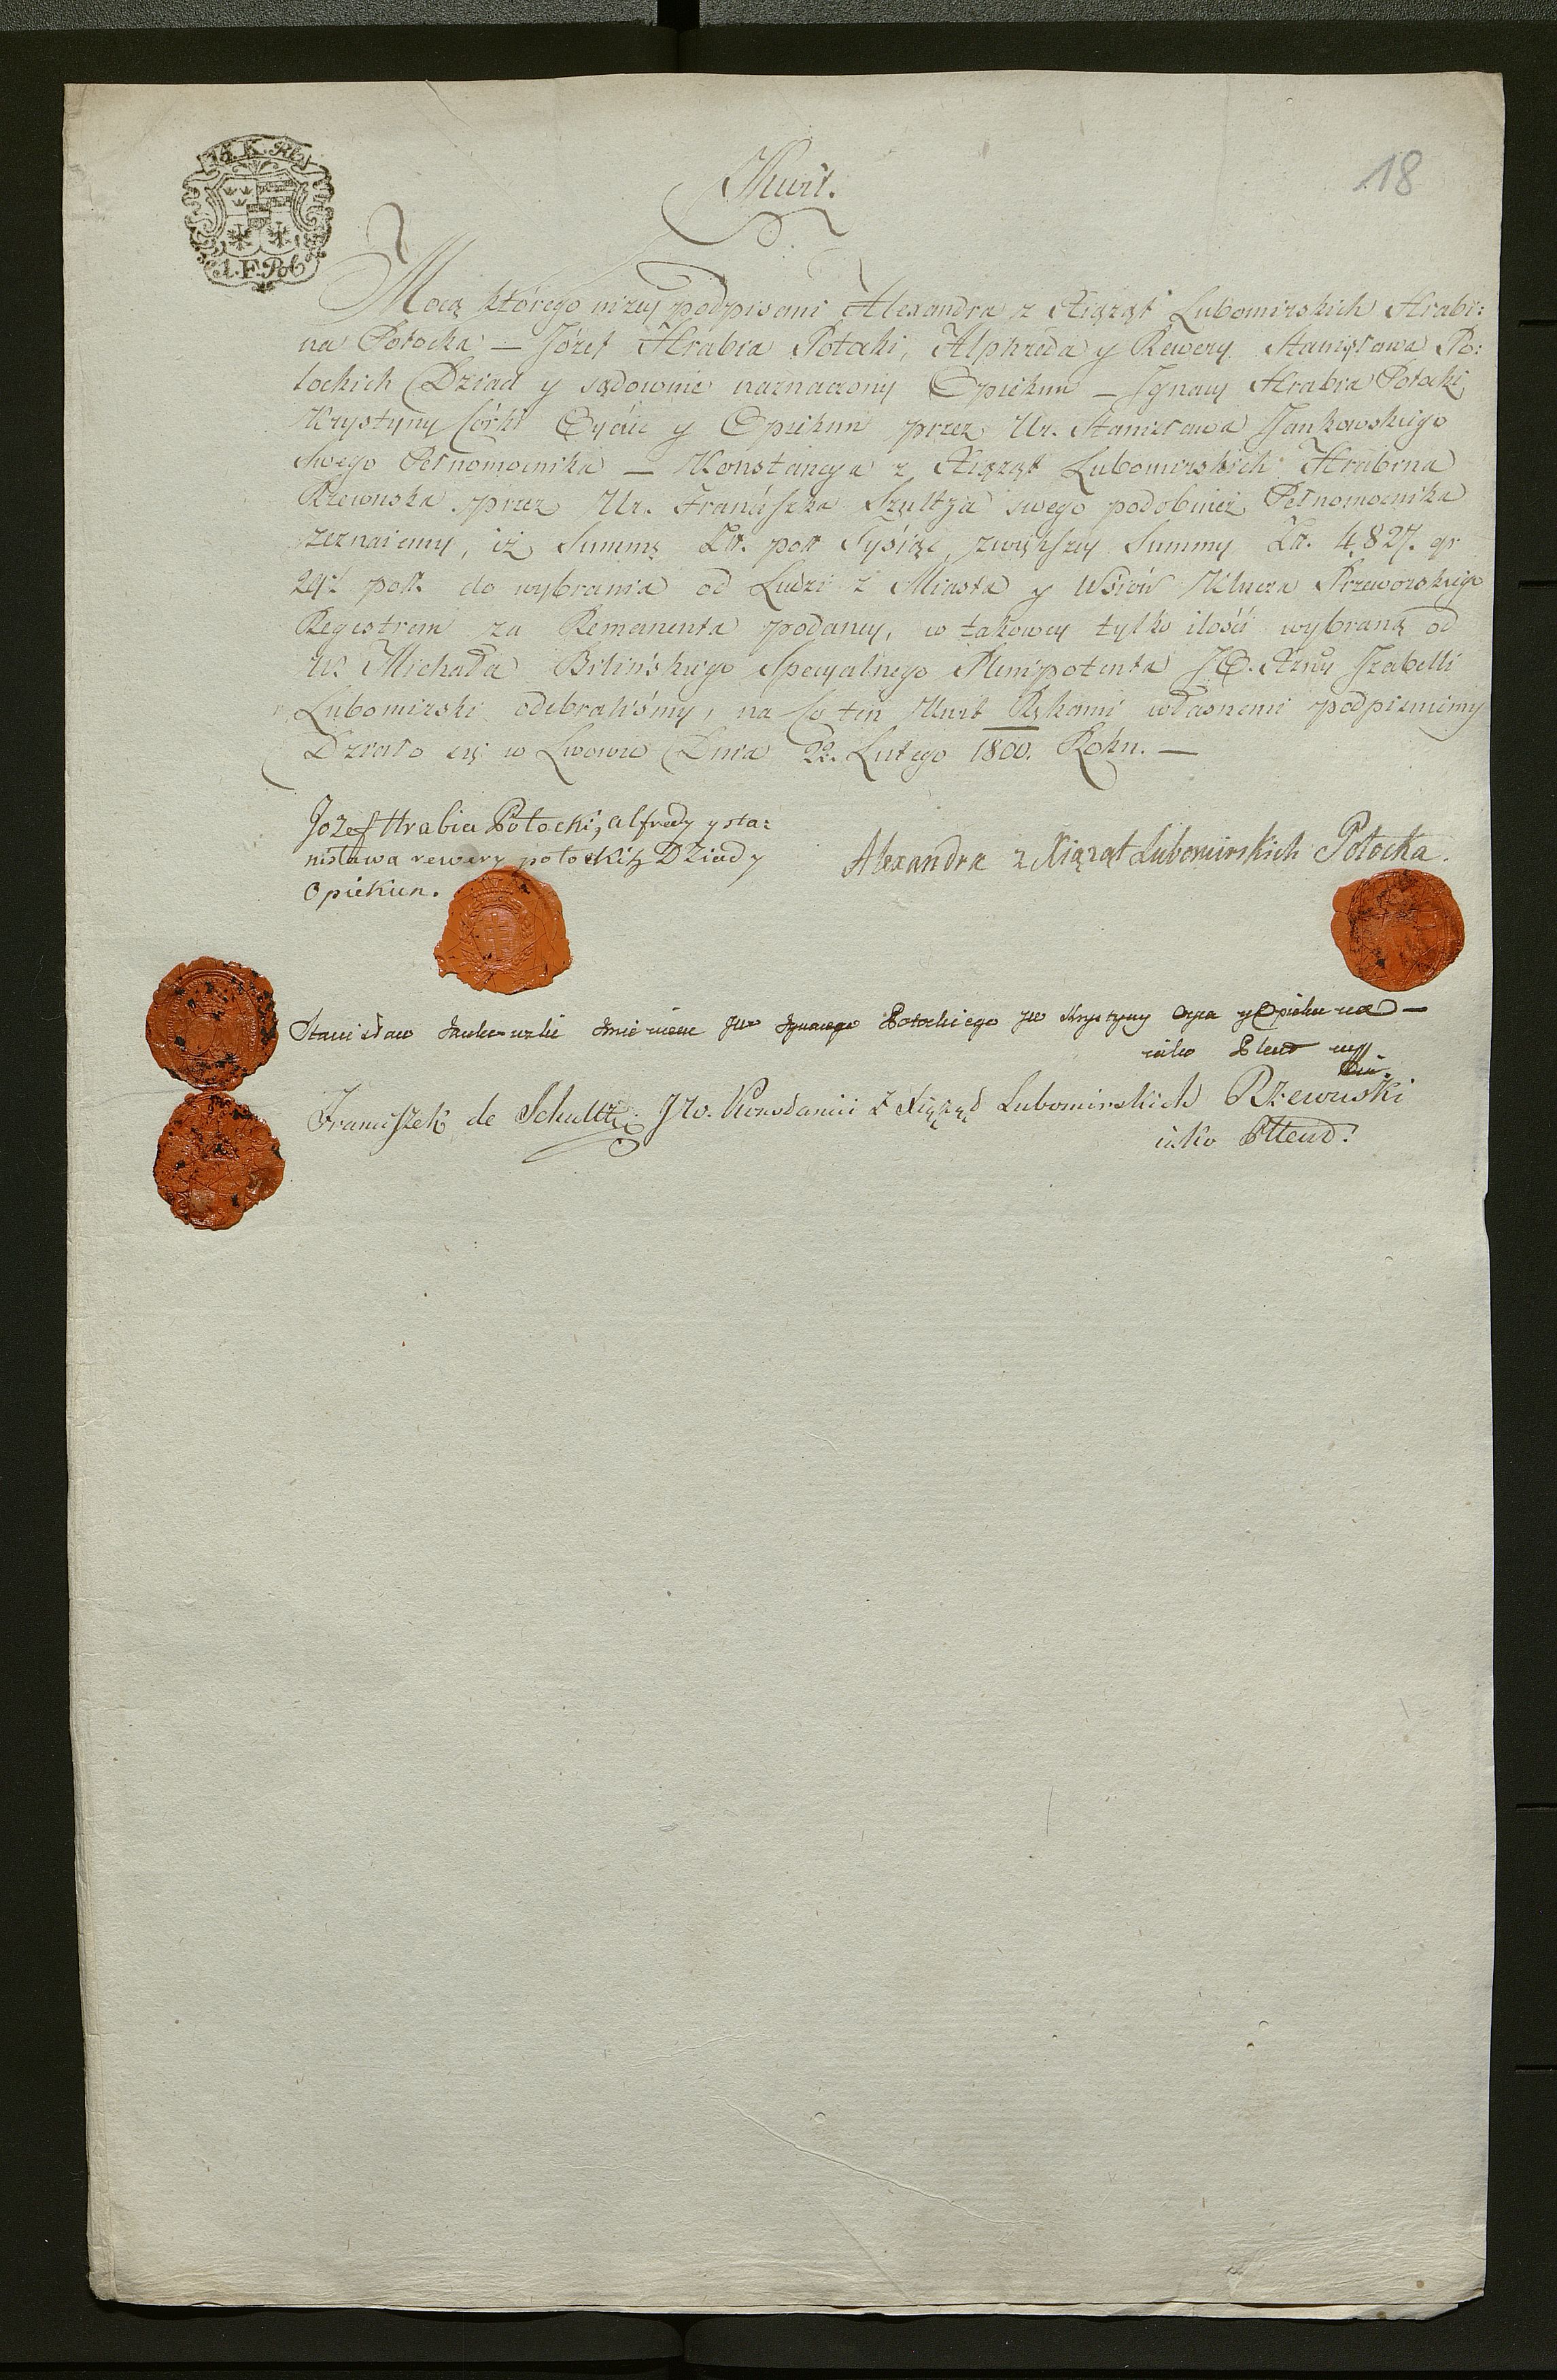 14. K. R.
1. F. Pol
18
Kwit.
Mocą którego nizey podpisani Alexandra z Xiążąt Lubomirskich Hrabi:
na Potocka — Józef Hrabia Potocki, Alphreda y Rewery Stanisława Po:
tockich Dziad y sądownie naznaczony Opiekun — Ignacy Hrabia Potocki
Krystyny Córki Oyciec y Opiekun przez Ur. Stanisława Jankowskiego
Swego Pełnomocnika — Konstancya z Xiążąt Lubomirskich Hrabina
Rzewuska przez Ur. Franciszka Szultza swego podobnież Pełnomocnika
zeznaiemy, iż Summę Zł. pol. Tysiąc, zwiększey Summy Zł. 4,827. gr
29½ pol. do wybrania od Ludzi z Miasta y Wsiów Klucza Przeworskiego
Regestrem za Remanenta podaney, w takowey tylko ilości wybraną od
W. Michała Bilińskiego Specyalnego Plenipotenta J.O. Xzny Izabelli
Lubomirski odebraliśmy, na co ten Kwit Rękami własnemi podpisuiemy
Działo się w Lwowie Dnia 22. Lutego 1800. Roku. —
Jozef Hrabia Potocki, alfredy y sta:
nisława rewery potockih Dziad y
Opiekun.
Alexandra z Xiążąt Lubomirskich Potocka.
Stanisław Jankowski Imieniem JW Ignacego Potockiego JW Krystyny Oyca y Opiekuna —
iako Plent
Franciszek de Schultz JW. Konstancii z Xiążąt Lubomirskich Rzewuski
iako Pltent.